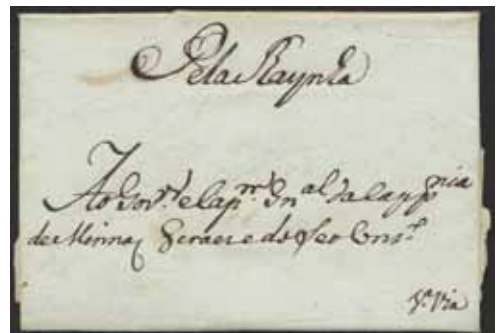 Pela Raynha
Ao Gov.or e Cap.m Gn.al da Capp.nia
de Minnas Geraes e do seo Cons.o
V.a Via